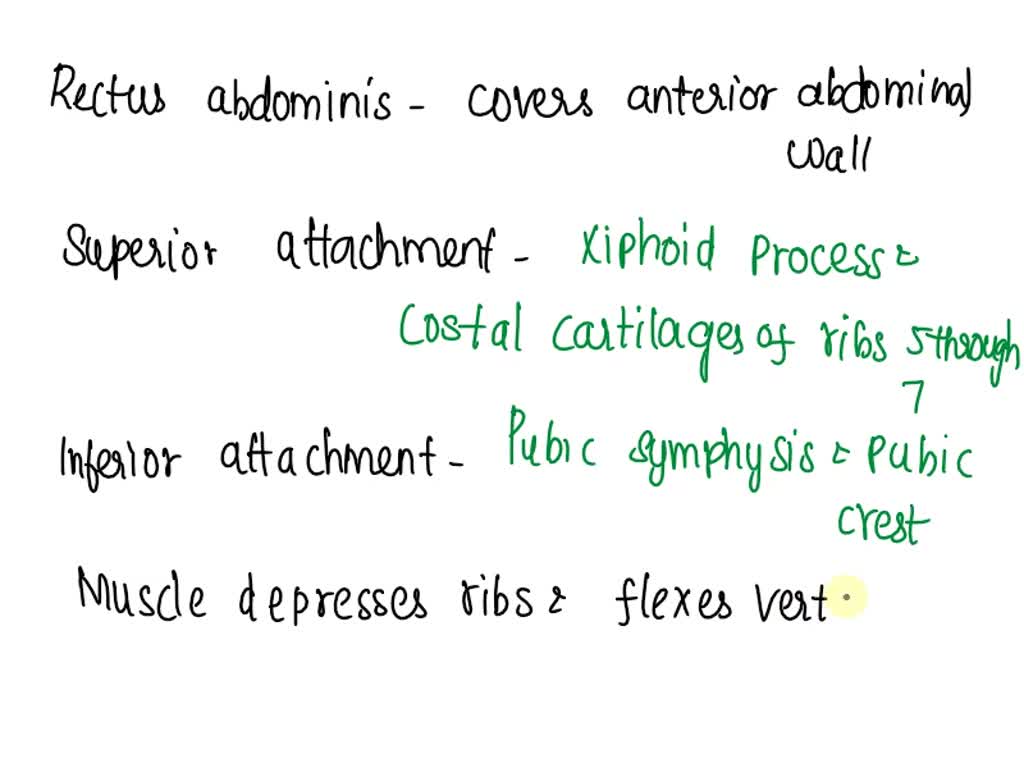 Rectus abdominis - covers anterior abdominal
wall
Superior attachment - Xiphoid Process &
Costal cartilages of ribs 5 through
7
Inferior attachment - Pubic symphysis & Pubic
crest
Muscle depresses ribs & flexes vert